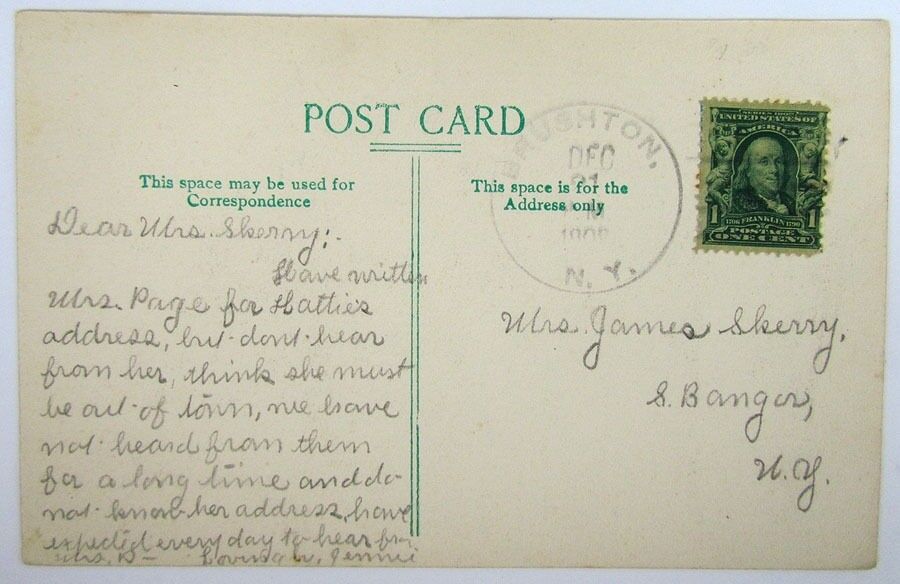 POST CARD
This space may be used for
Correspondence
This space is for the
Address only
BRUSHTON,
DEC
21
190
N. Y.
SERIES 1902
UNITED STATES OF
AMERICA
1 1706 FRANKLIN 1790 1
POSTAGE
ONE CENT
Dear Mrs. Skerry:-
Have written
Mrs. Page for Hattie's
address, but dont hear
from her, think she must
be out of town, we have
not heard from them
for a long time and do
not know her address, have
expected every day to hear
Mrs. Lovingly, Jennie
Mrs. James Skerry,
S. Bangor,
N.Y.